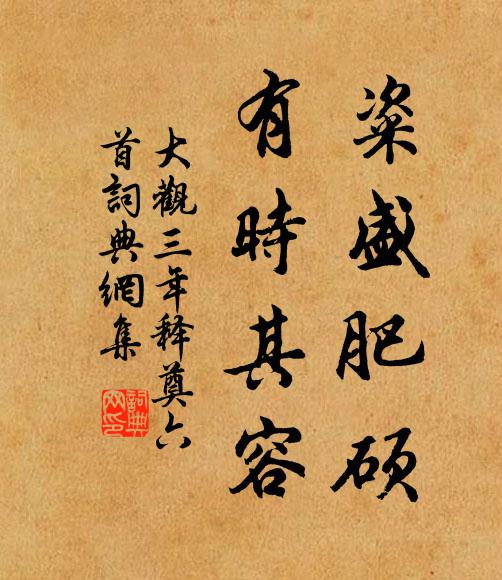 粢盛肥硕
有時其容
大觀三年释奠六
首詞典網集
詞典网印